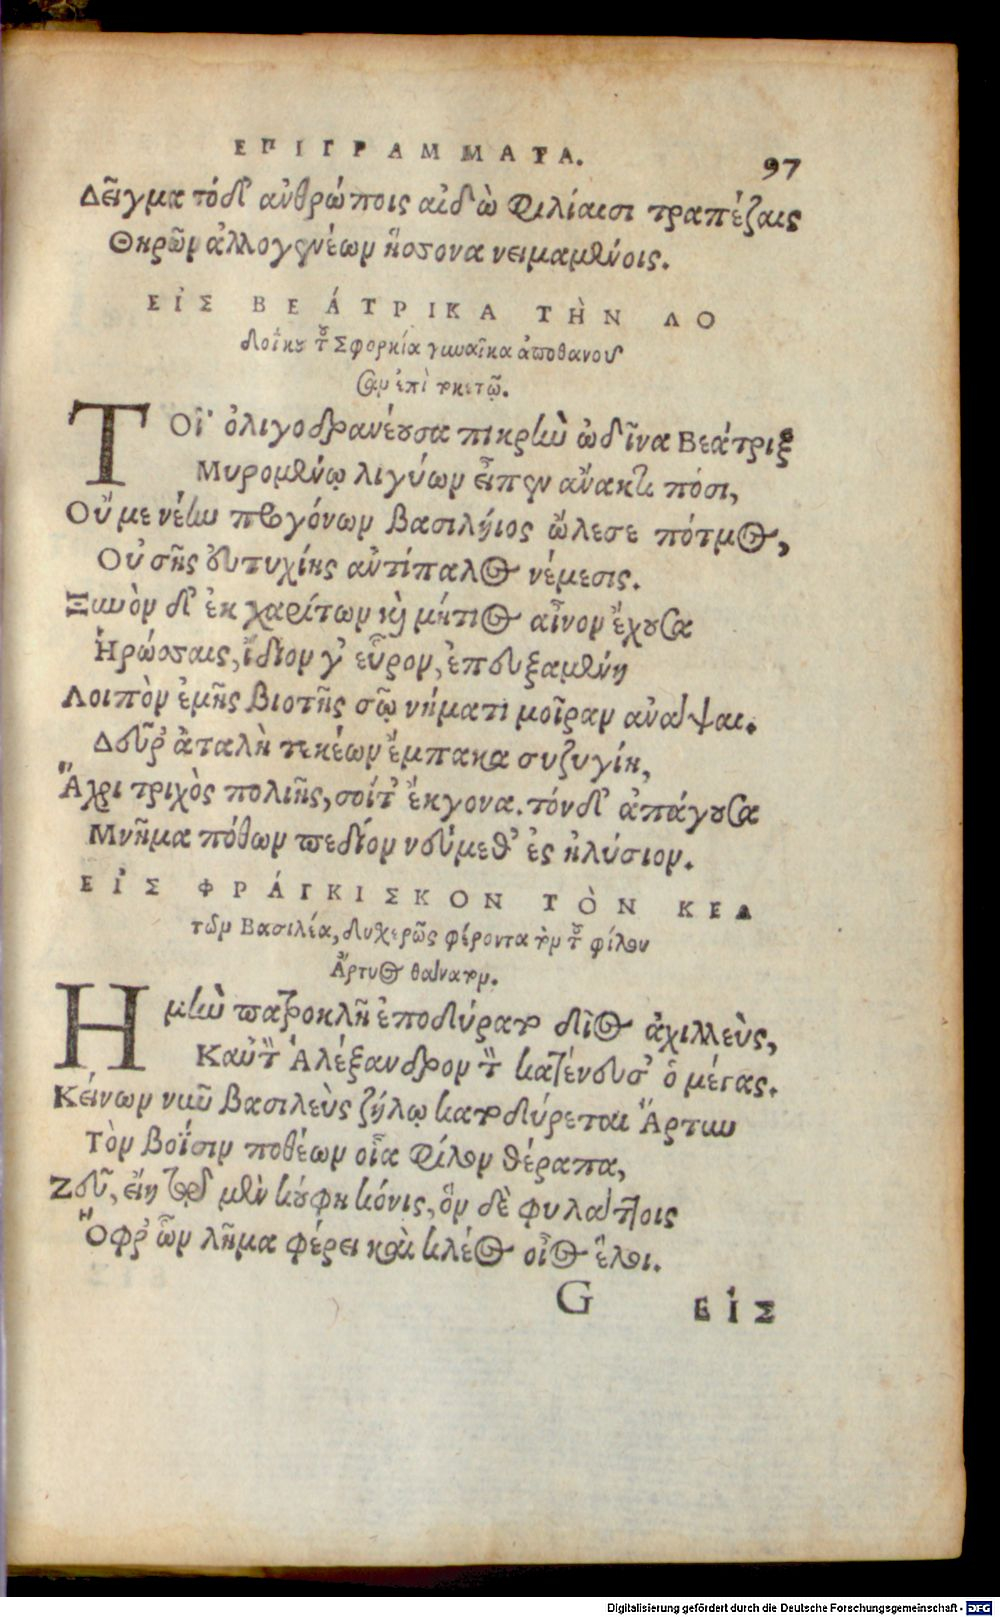 ΕΠΙΓΡΑΜΜΑΤΑ. 97
Δεῖγμα τόδ' ἀνθρώποις αἰδὼ φιλίαισι τραπέζαις
Θηρῶν ἀλλογενέων ἥσσονα νειμαμένοις.
ΕἸΣ ΒΕΆΤΡΙΚΑ ΤῊΝ ΛΟ
δοΐκου τοῦ Σφορκία γυναῖκα ἀποθανοῦ
σαν ἐπὶ τοκετῷ.
ΤΟῖ' ὀλιγοδρανέουσα πικρὴν ὠδῖνα Βεάτριξ
Μυρομένῳ λιγέων εἶπεν ἄνακτι πόσι,
Οὔ με νέην προγόνων βασιλήιος ὤλεσε πότμος,
Οὐ σῆς εὐτυχίης ἀντίπαλος νέμεσις.
Ξυνὸν δ' ἐκ χαρίτων καὶ μήτιος αἶνον ἔχουσα
Ἡρώσσαις, ἴδιον γ' εὗρον, ἐπευξαμένη
Λοιπὸν ἐμῆς βιοτῆς σῷ νήματι μοῖραν ἀνάψαι.
Δεῦρ' ἀταλὴ τεκέων ἔμπακα συζυγίη,
Ἄχρι τριχὸς πολιῆς, σοί τ' ἔκγονα. τόνδ' ἀπάγουσα
Μνῆμα πόθων πεδίον νεύμεθ' ἐς ἠλύσιον.
ΕἸΣ ΦΡΆΓΚΙΣΚΟΝ ΤῸΝ ΚΕΛ
τῶν Βασιλέα, δυχερῶς φέροντα τὸν τοῦ φίλου
Ἄρτυος θάνατον.
Ημὴν πατροκλῆ ἐποδύρατο δῖος ἀχιλλεὺς,
Καὖτ' Ἀλέξανδρον τοῦ κατένευσ' ὁ μέγας.
Κείνων νῦν βασιλεὺς ζήλῳ κατοδύρεται Ἄρτυν
Τὸν βοΐσιν ποθέων οἷα φίλον θέραπα,
Ζεῦ, εἴη τῷδε μὲν κούφη κόνις, ὃν δὲ φυλάττοις
Ὄφρ' ὧν λῆμα φέρει καὶ κλέος οἷος ἕλοι.
G ΕἸΣ
Digitalisierung gefördert durch die Deutsche Forschungsgemeinschaft - DFG